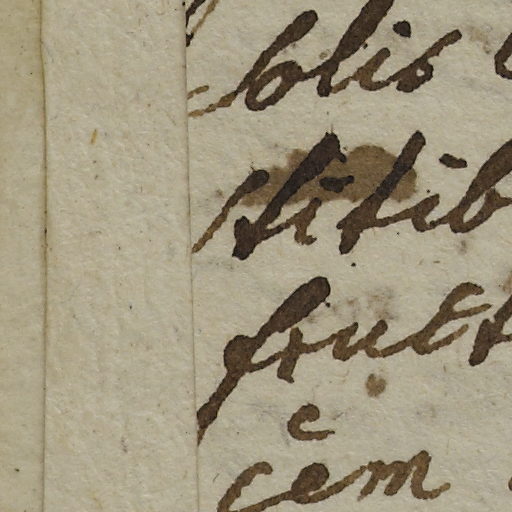 blis
stitib
fruct
cem